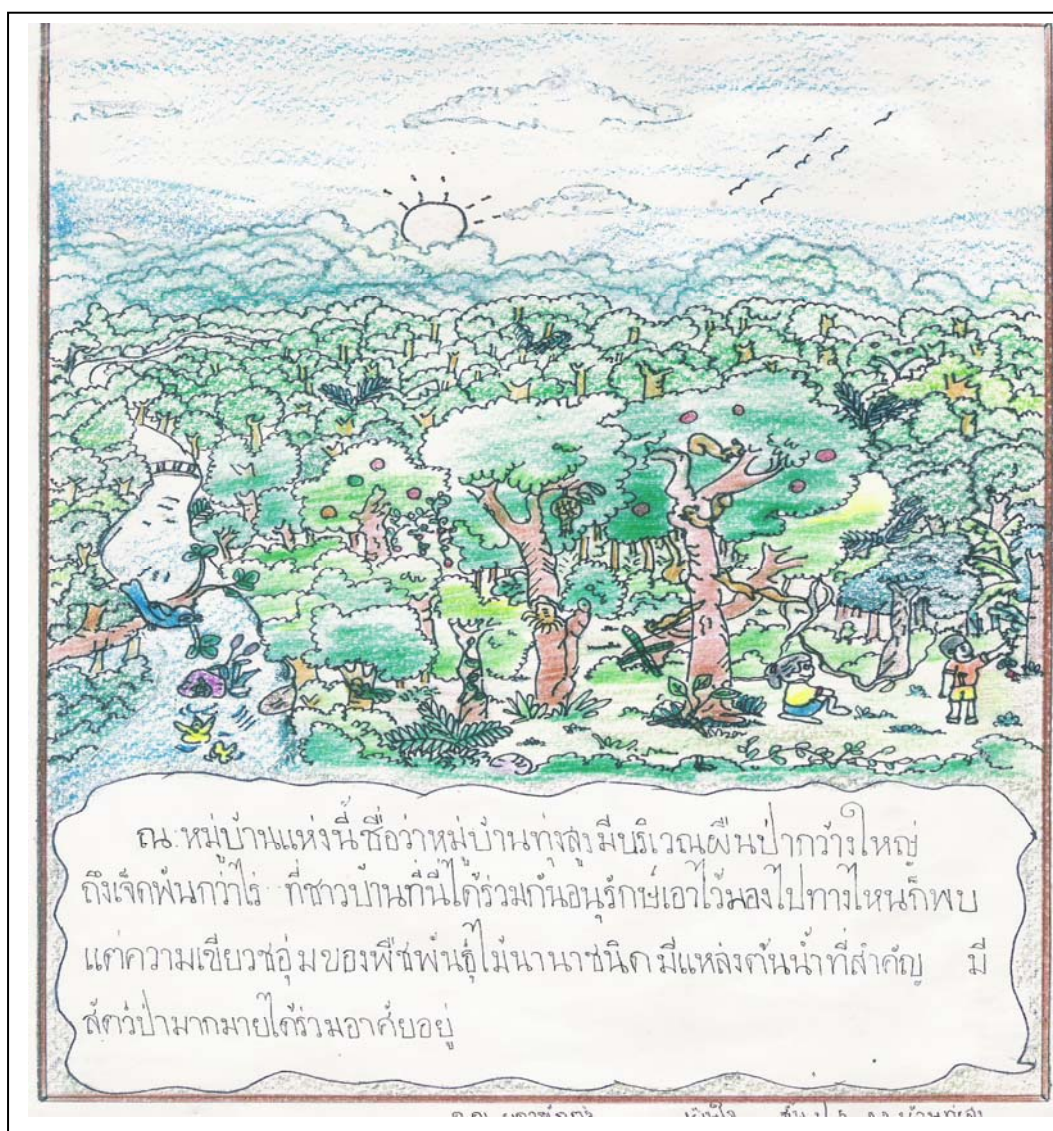 ณ.หมู่บ้านแห่งนี้ ชื่อว่าหมู่บ้านทุ่งสูง มีบริเวณผืนป่ากว้างใหญ่
ถึงเจ็ดพันกว่าไร่ ที่ชาวบ้านที่นี่ได้ร่วมกันอนุรักษ์เอาไว้มองไปทางไหนก็พบ
แต่ความเขียวชอุ่มของพืชพันธุ์ไม้นานาชนิด มีแหล่งต้นน้ำที่สำคัญ มี
สัตว์ป่ามากมายได้ร่วมอาศัยอยู่